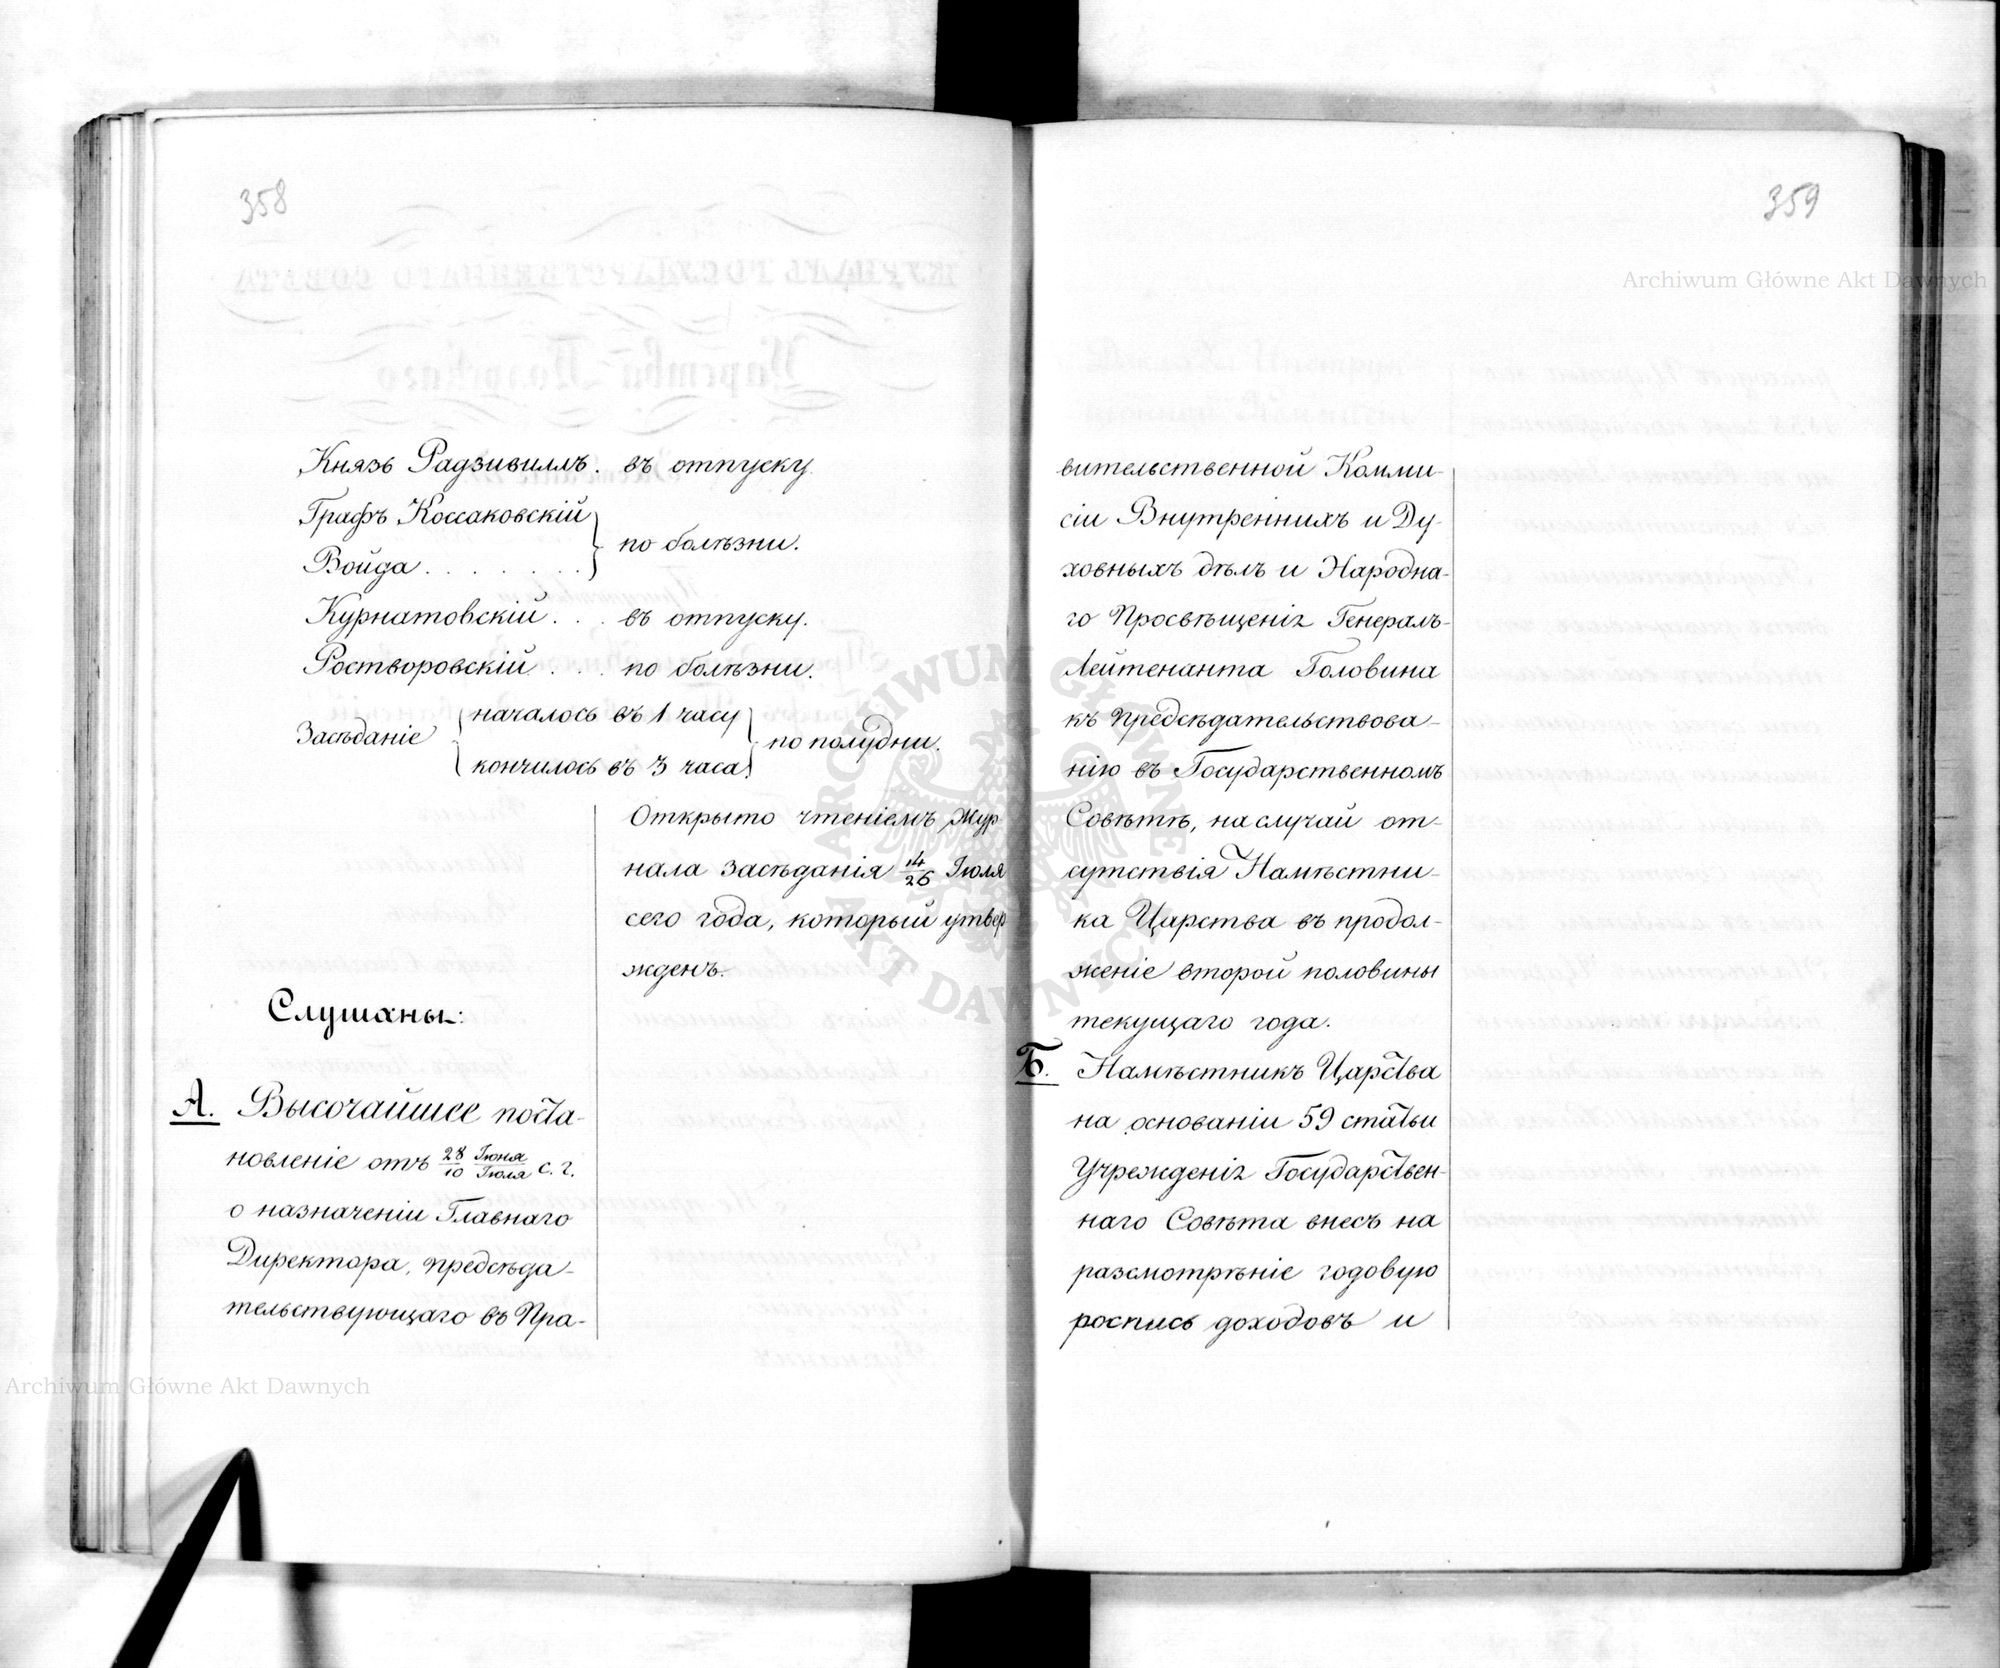 358
Князь Радзивиллъ. въ отпуску.
Графъ Коссаковскій
Войда . . . . . . . по болѣзни.
Курнатовскій . . . въ отпуску.
Ростворовскій . . . по болѣзни.
Засѣданіе началось въ 1 часу
кончилось въ 3 часа по полудни.
Открыто чтеніемъ Жур
нала засѣданія 14/26 Іюля
сего года, который утвер
жденъ.
Слушаны:
А. Высочайшее поста-
новленіе отъ 28 Іюня/10 Іюля с. г.
о назначеніи Главнаго
Директора, предсѣда-
тельствующаго въ Пра-
359
вительственной Комми-
сіи Внутреннихъ и Ду-
ховныхъ дѣлъ и Народна-
го Просвѣщенія Генералъ-
Лейтенанта Головина
къ предсѣдательствова-
нію въ Государственномъ
Совѣтѣ, на случай от-
сутствія Намѣстни-
ка Царства въ продол-
женіе второй половины
текущаго года.
Б. Намѣстникъ Царства
на основаніи 59 статьи
Учрежденія Государствен-
наго Совѣта внесъ на
разсмотрѣніе годовую
роспись доходовъ и
Archiwum Główne Akt Dawnych
Archiwum Główne Akt Dawnych
ARCHIWUM GŁÓWNE
AKT DAWNYCH